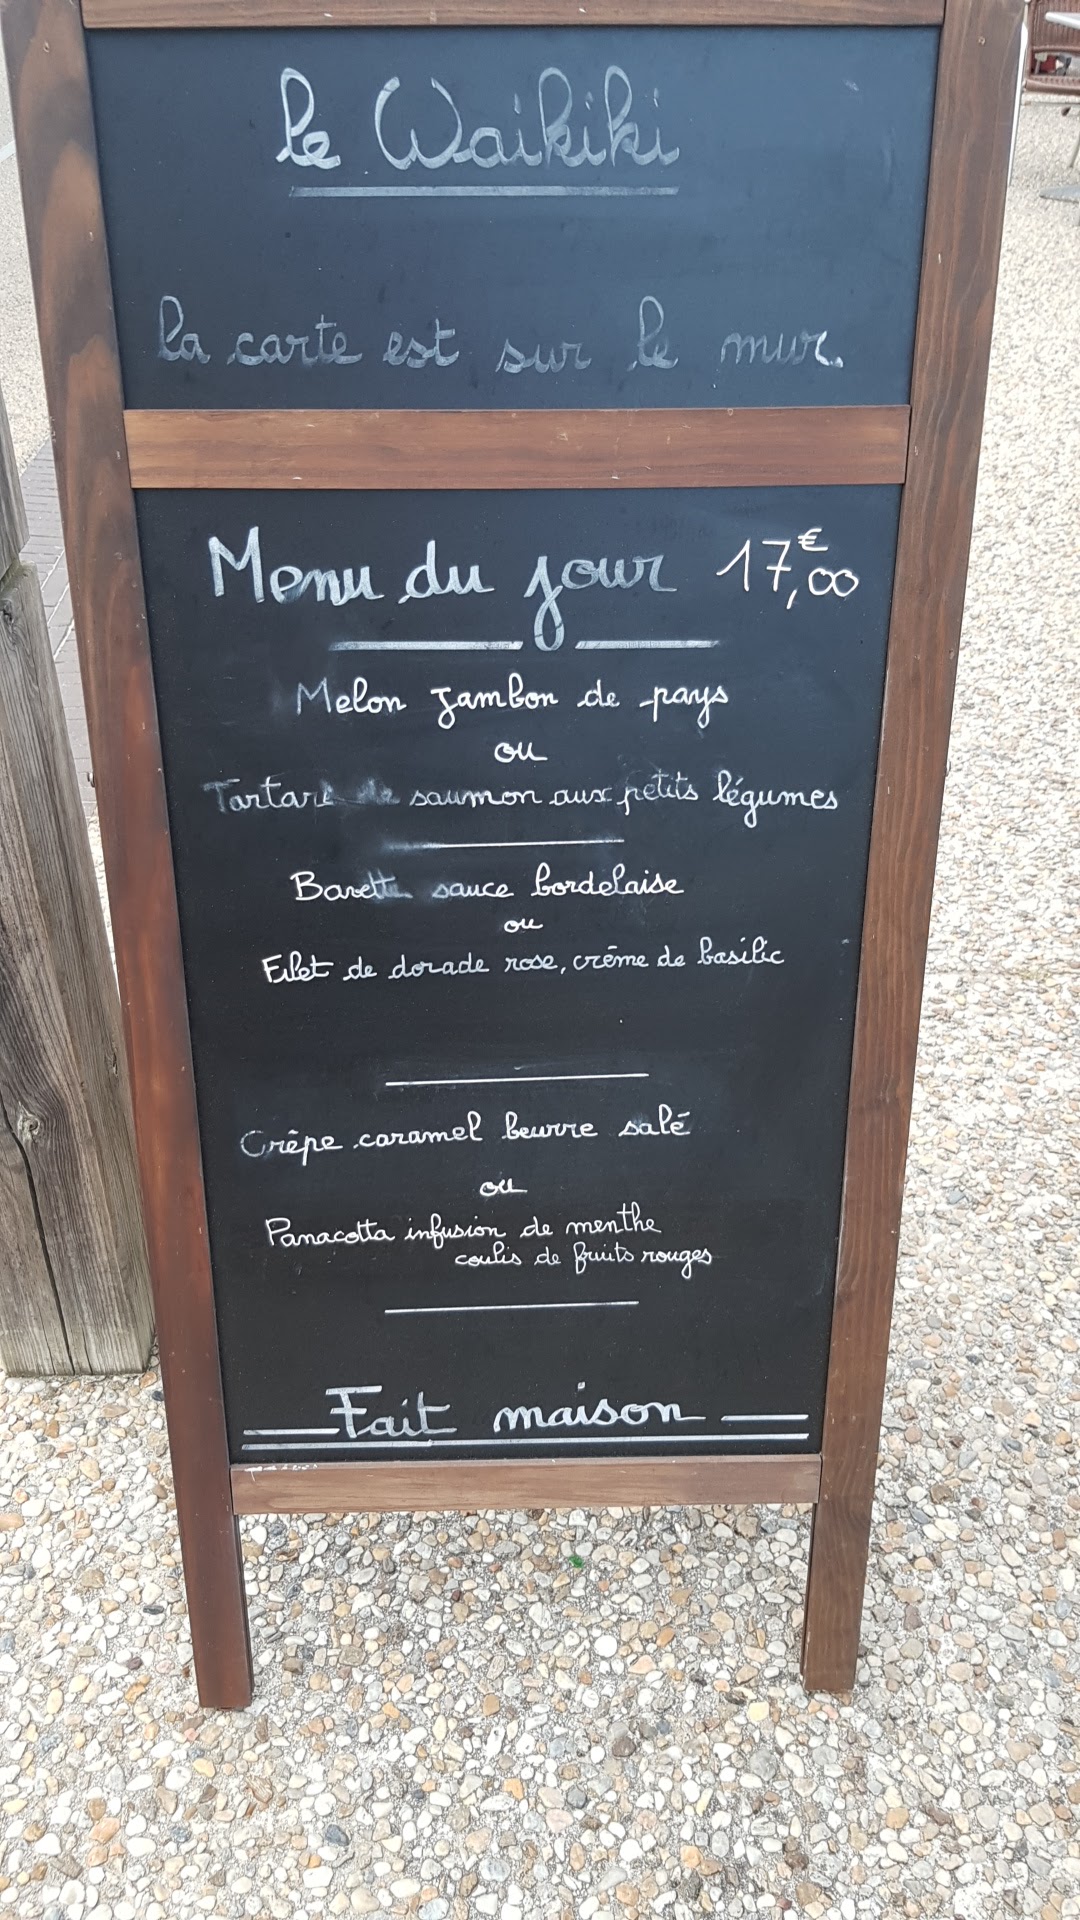 le Waikiki
la carte est sur le mur.
Menu du jour 17,00€
Melon Jambon de pays
ou
Tartare de saumon aux petits légumes
Bavette sauce bordelaise
ou
Filet de dorade rose, crème de basilic
Crêpe caramel beurre salé
ou
Panacotta infusion de menthe
coulis de fruits rouges
Fait maison